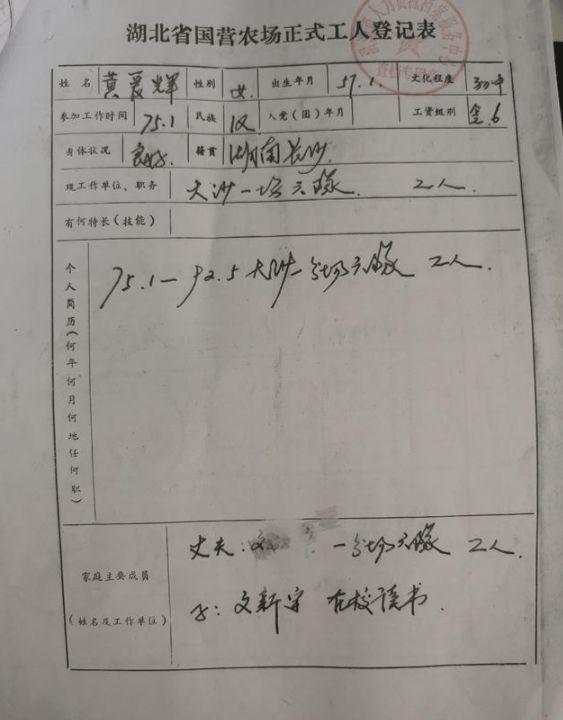 湖北省国营农场正式工人登记表
姓名 黄爱辉 性别 女 出生年月 57.1. 文化程度 初中
参加工作时间 75.1 民族 汉 入党(团)年月 工资级别 企.6
身体状况 良好. 籍贯 湖南长沙
现工作单位、职务 大沙一分场六队 工人.
有何特长(技能)
个人简历(何年何月何地任何职) 75.1—92.5 大沙一分场六队 工人.
家庭主要成员
(姓名及工作单位)
丈夫:文 一分场六队 工人.
子:文新宇 在校读书.